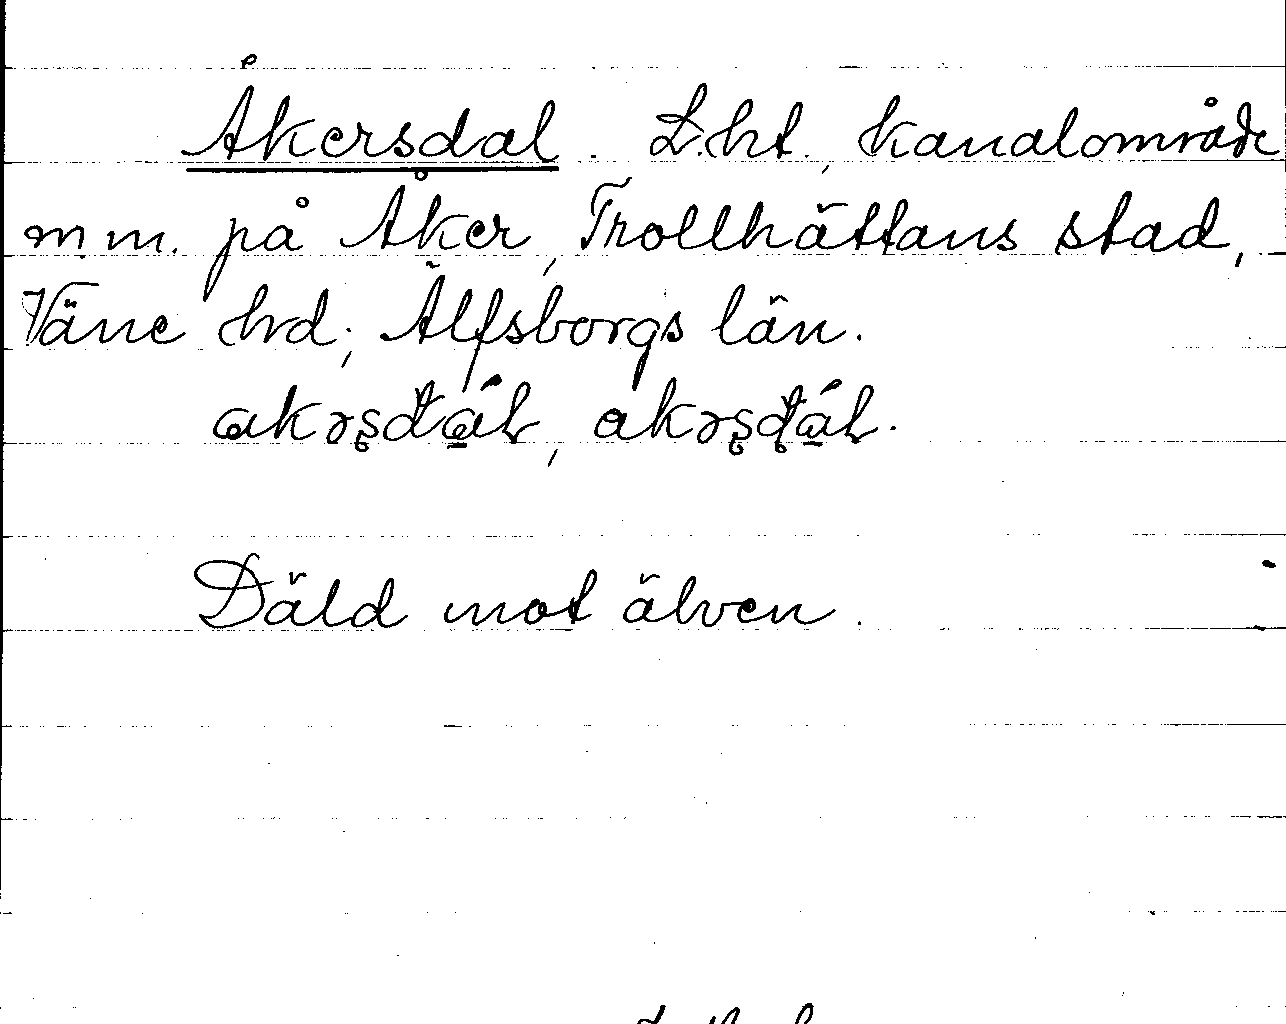 Åkersdal. L.ht., kanalområde
m m. på Åker, Trollhättans stad,
Väne hd; Älfsborgs län.
Däld mot älven.